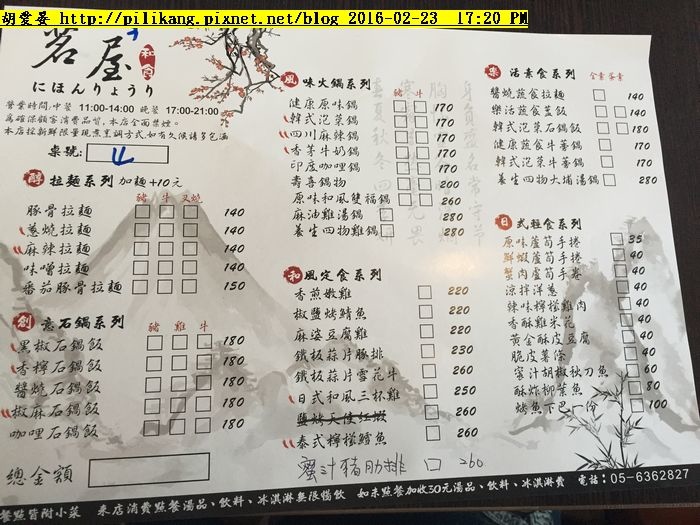 胡愛晏 http://pilikang.pixnet.net/blog 2016-02-23 17:20 PM
茗屋 和食
にほんりょうり
營業時間:中餐 11:00-14:00 晚餐 17:00-21:00
為確保顧客消費品質,本店全面禁煙。
本店採新鮮限量現煮烹調方式,如有久候請多包涵
桌號: 4
醇 拉麵系列 加麵+10元
豬 牛 叉燒
豚骨拉麵 140
蔥燒拉麵 140
麻辣拉麵 140
味噌拉麵 140
番茄豚骨拉麵 150
創 意石鍋系列
豬 雞 牛
黑椒石鍋飯 180
香檸石鍋飯 180
醬燒石鍋飯 180
椒麻石鍋飯 180
咖哩石鍋飯 180
總金額
風 味火鍋系列 豬 牛
健康原味鍋 170
韓式泡菜鍋 170
四川麻辣鍋 170
香茅牛奶鍋 170
印度咖哩鍋 170
壽喜鍋物 200
原味和風雙福鍋 260
麻油雞湯鍋 280
養生四物雞鍋 280
和 風定食系列
香煎嫩雞 220
椒鹽烤鯖魚 220
麻婆豆腐雞 220
鐵板蒜片豚排 230
鐵板蒜片雪花牛 260
日式和風三杯雞 260
鹽烤天使紅蝦 260
泰式檸檬鱈魚 260
蜜汁豬肋排 260
樂 活素食系列 全素 蛋素
醬燒蔬食拉麵 140
樂活蔬食蓋飯 140
韓式泡菜石鍋飯 180
健康蔬食牛蒡鍋 180
韓式泡菜牛蒡鍋 180
養生四物大埔湯鍋 280
日 式輕食系列
原味蘆筍手捲 35
鮮蝦蘆筍手捲 40
蟹肉蘆筍手捲 40
涼拌洋蔥 40
辣味檸檬雞肉 40
香酥雞米花 40
黃金酥皮豆腐 40
脆皮薯條 40
蜜汁胡椒秋刀魚 60
酥炸柳葉魚 60
烤魚下巴一份 100
餐點皆附小菜 來店消費點餐湯品、飲料、冰淇淋無限暢飲 如未點餐加收30元湯品、飲料、冰淇淋 電話:05-6362827